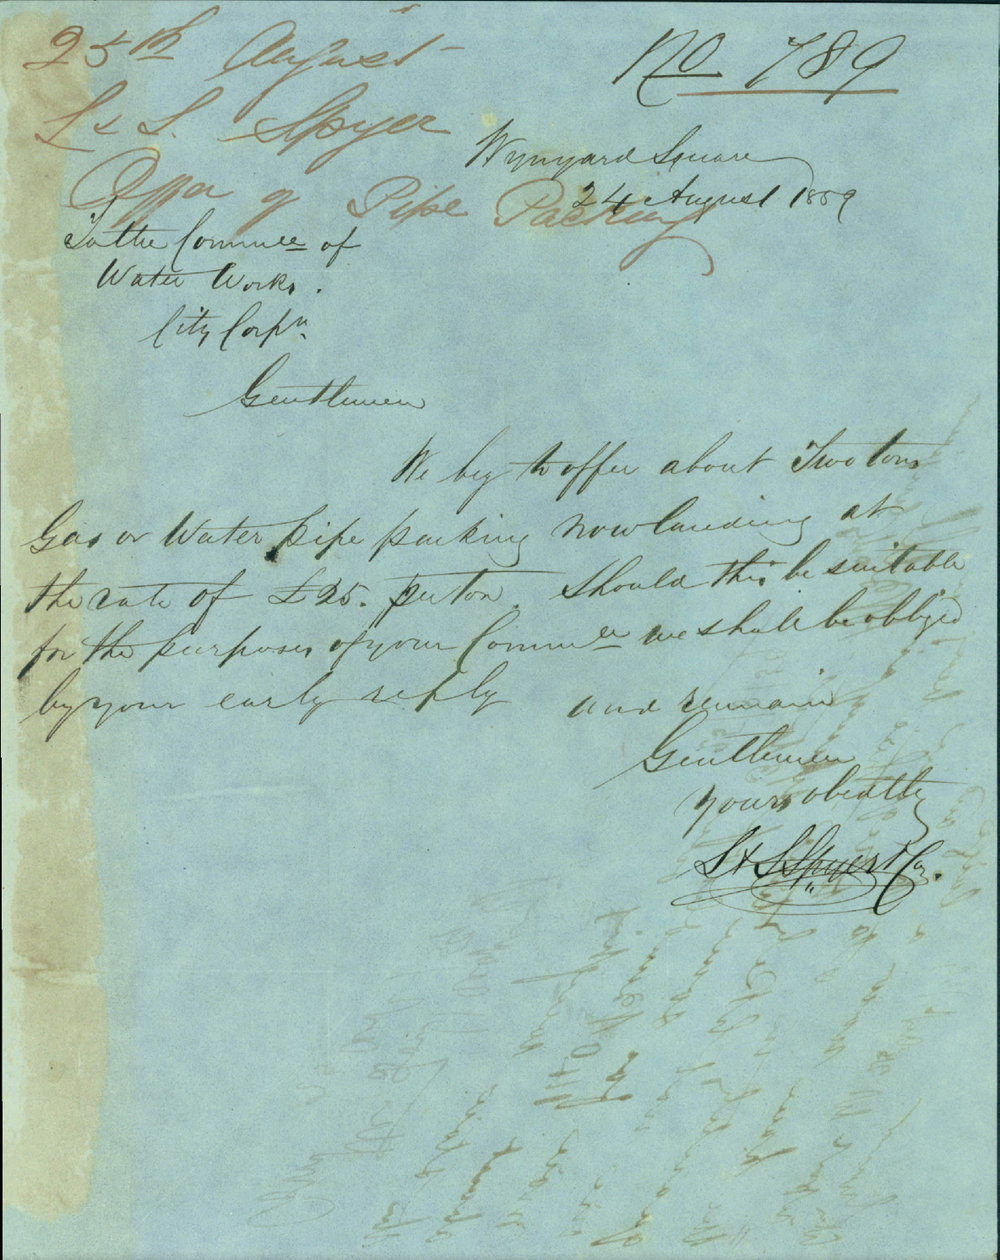 25th August
No 789
L & S. Spyer
Offer of Pipe Packing
Wynyard Square
24 August 1859
To the Commee of
Water Works.
City Corpn.
Gentlemen
We beg to offer about Two tons
Gas or Water pipe packing now landing at
the rate of £25. per ton. Should this be suitable
for the purposes of your Commee we shall be obliged
by your early reply and remain
Gentlemen
Yours obedtly
L & S Spyer & Co.